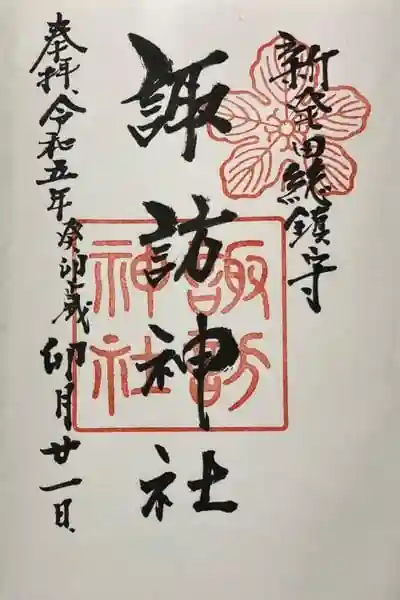 新発田総鎮守
諏訪神社
奉拝、令和五年癸卯歳卯月廿一日
諏訪
神社